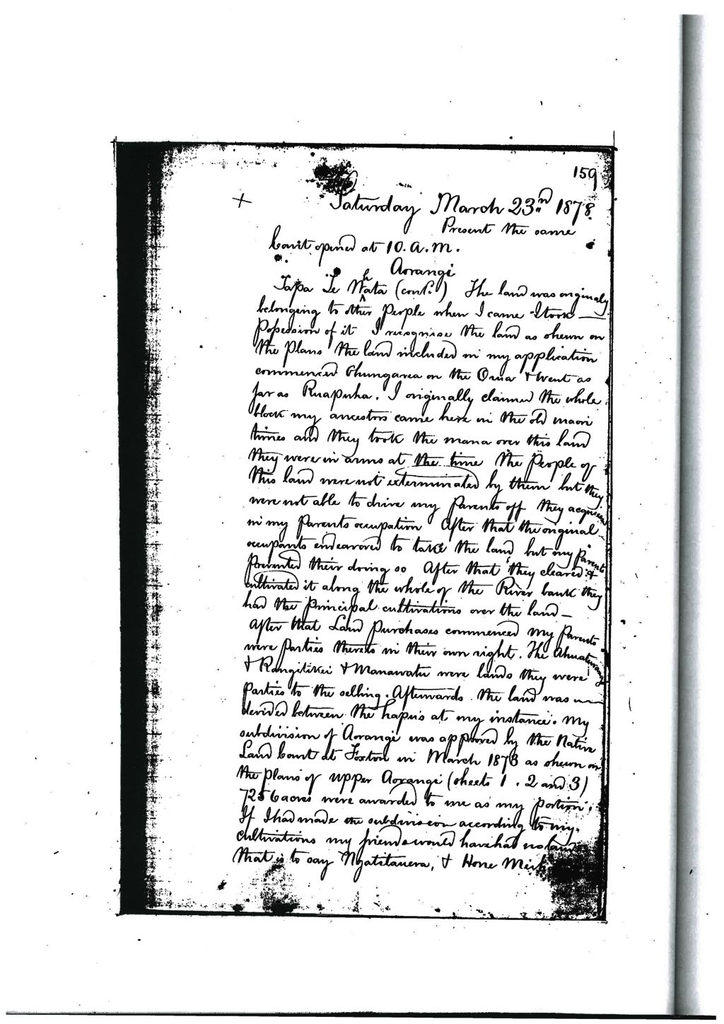 159
+ Saturday March 23rd 1878
Present the same
Court opened at 10. A.M.
Aorangi
Tapa Te Whata (cont.) The land was originaly
belonging to other People when I came I took
Possession of it I recognise the land as shewn on
the Plans the land included in my application
commenced on the Oroua & went as
far as Ruapuha. I originally claimed the whole
block my ancestors came here in the old maori
times and they took the mana over this land
they were in arms at the time the People of
this land were not exterminated by them but they
were not able to drive my Parents off they
in my Parents occupation After that the original
occupants endeavored to take the land but my Parents
prevented their doing so After that they cleared &
cultivated it along the whole of the River bank they
had the Principal cultivations over the land —
After that Land Purchases commenced my Parents
were Parties thereto in their own right. The Ahuaturanga
& Rangitikei & Manawatu were lands they were
Parties to the selling. Afterwards the land was
devided between the hapus at my instance. My
subdivision of Aorangi was approved by the Native
Land Court at Foxton in March 1873 as shewn on
the Plans of upper Aorangi (sheets 1. 2 and 3)
7256 acres were awarded to me as my portion.
If I had made the subdivision according to my
cultivations my friends would have had no land
that is to say Ngatitauera, & Hone